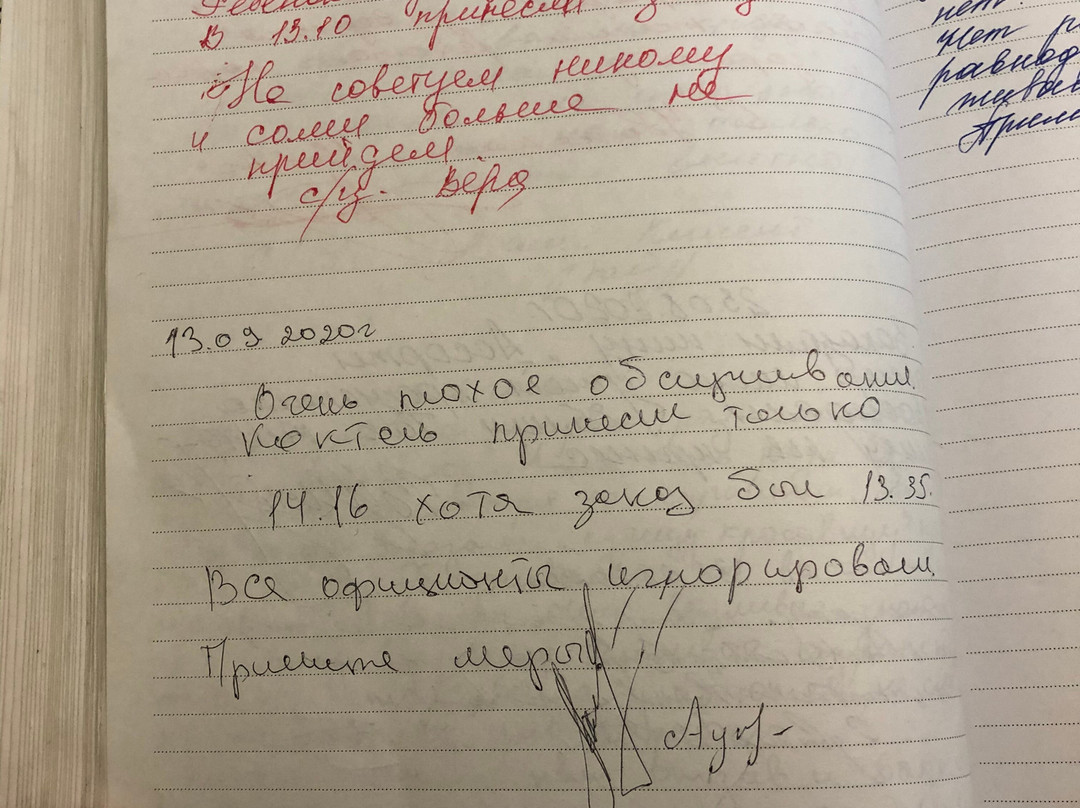 В 13.10 принесли
Не советуем никому
и сами больше не
прийдем
с/ц. Вера
13.09 2020г
Очень плохое обслуживание.
Коктель принесли только
14.16 хотя заказ был 13.35.
Все официанты игнорировали.
Примите меры
нет.
Нет